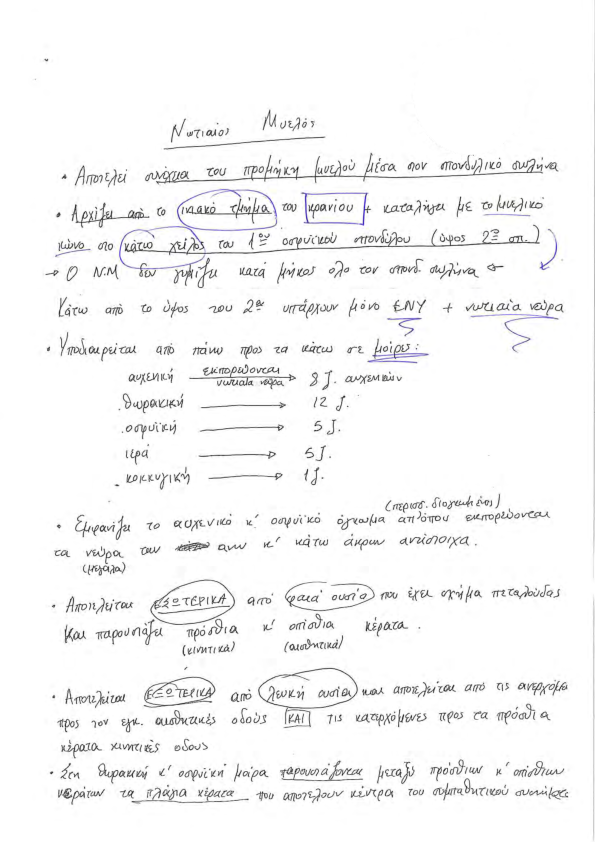 Νωτιαίος Μυελός
• Αποτελεί συνέχεια του προμήκη μυελού μέσα στον σπονδυλικό σωλήνα
• Αρχίζει από το ινιακό τμήμα του κρανίου + καταλήγει με το μυελικό
κώνο στο κάτω χείλος του 1ου οσφυϊκού σπονδύλου (ύψος 2ου σπ.)
→ Ο Ν.Μ δεν γεμίζει κατά μήκος όλο τον σπονδ. σωλήνα
Κάτω από το ύψος του 2ου υπάρχουν μόνο ΕΝΥ + νωτιαία νεύρα
• Υποδιαιρείται από πάνω προς τα κάτω σε μοίρες:
αυχενική εκπορεύονται νωτιαία νεύρα → 8 ζ. αυχενικών
.θωρακική → 12 ζ.
.οσφυϊκή → 5 ζ.
ιερά → 5 ζ.
.κοκκυγική → 1 ζ.
(περισσ. διογκωμένος)
• Εμφανίζει το αυχενικό κ' οσφυϊκό όγκωμα απ'όπου εκπορεύονται
τα νεύρα των άνω κ' κάτω άκρων αντίστοιχα.
(μεγάλα)
• Αποτελείται ΕΞΩΤΕΡΙΚΑ από φαιά ουσία που έχει σχήμα πεταλούδας
και παρουσιάζει πρόσθια κ' οπίσθια κέρατα.
(κινητικά) (αισθητικά)
• Αποτελείται ΕΞΩΤΕΡΙΚΑ από λευκή ουσία και αποτελείται από τις ανερχόμε
προς τον εγκ. αισθητικές οδούς ΚΑΙ τις κατερχόμενες προς τα πρόσθια
κέρατα κινητικές οδους
• Στη θωρακική κ' οσφυϊκή μοίρα παρουσιάζονται μεταξύ πρόσθιων κ' οπίσθιων
κεράτων τα πλάγια κέρατα που αποτελουν κέντρα του συμπαθητικού συστήματο